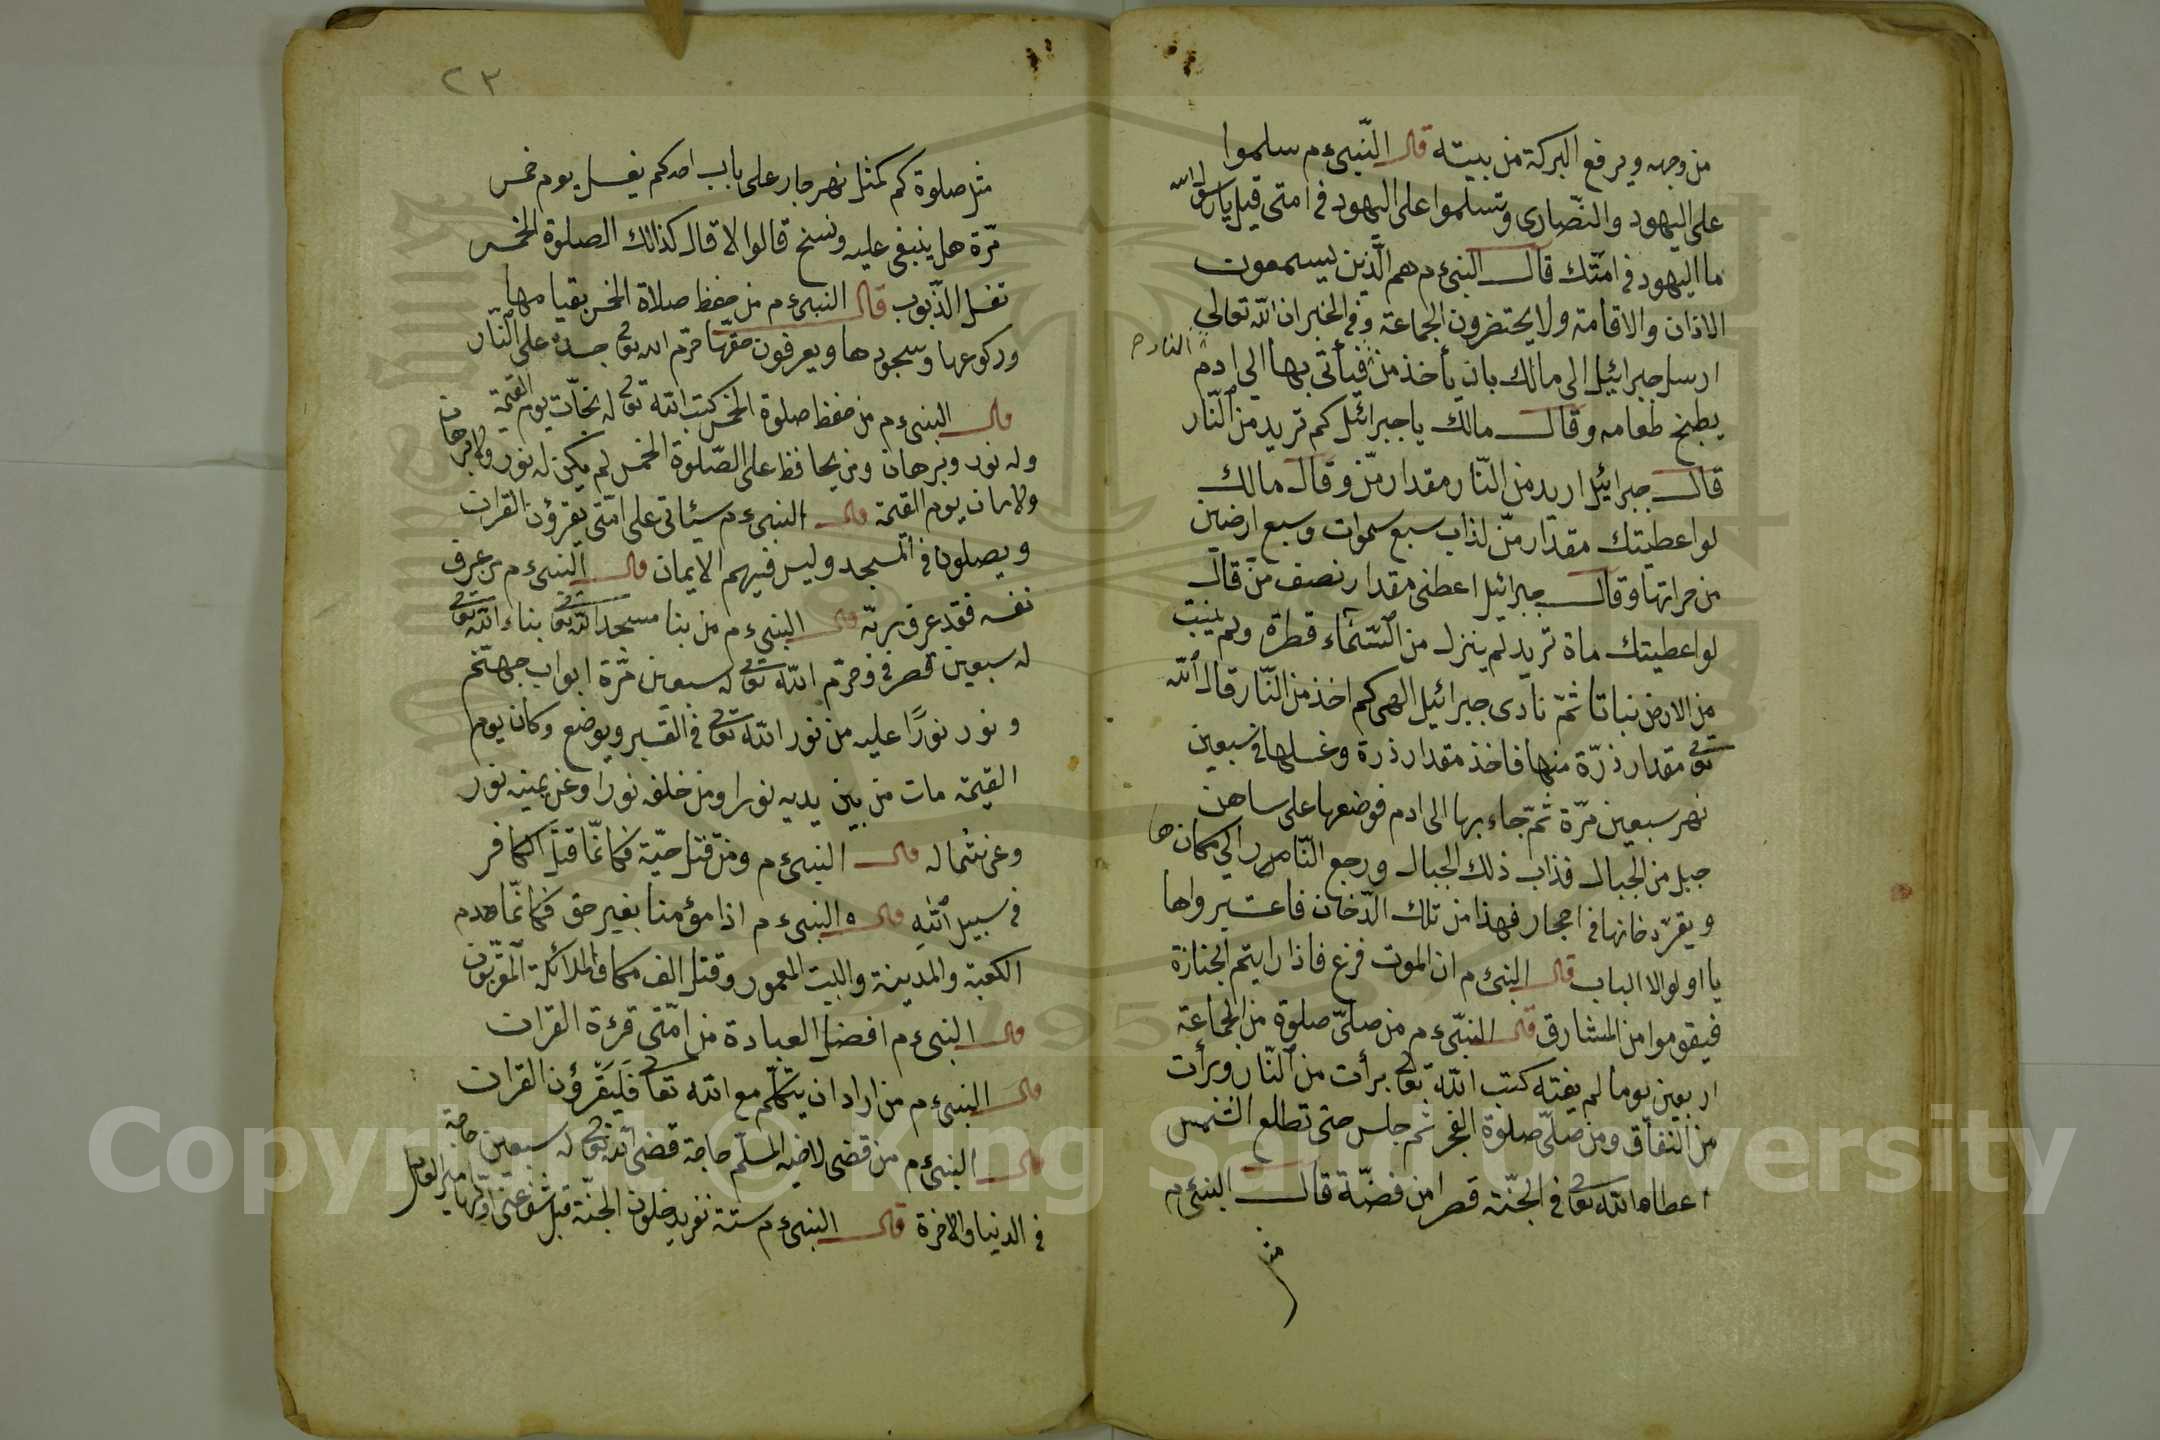 من وجهه ويرفع البركة من بيته قال النّبىء م سلموا
على اليهود والنّصارى وتسلموا على اليهود فى امتى قيل يا رسول الله
ما اليهود فى امّتك قال النبىء م هم الّذين ليسمعون
الاذان والاقامة ولا يحتضرون الجماعة وفى الخبر ان الله تعالى
ارسل جبرائيل الى مالك بان يأخذ من فيأتى بها الى ادم
النار صح
يطبخ طعامه وقال مالك يا جبرائيل كم تريد من النّار
قال جبرائيل اريد من النّار مقدار منّ وقال مالك
لو اعطيتك مقدار منّ لذاب سبع سموات وسبع ارضين
من حرارتها وقال جبرائيل اعطنى مقدار نصف منّ قال
لو اعطيتك ماة تريد لم ينزل من السّماء قطرة ولم ينبت
من الارض نباتا ثمّ نادى جبرائيل الهى كم اخذ من النّار قال الله
تع مقدار ذرّة منها فاخذ مقدار ذرة وغسلها فى سبعين
نهر سبعين مرّة ثمّ جاء بها الى ادم فوضعها على ساهن
جبل من الجبال فذاب ذلك الجبال ورجع النّار الى مكان ها
وبقى دخانها فى احجار فهذا من تلك الدّخان فاعتبروا ها
يا اولوالا الباب قال النبىء م ان الموت فزع فاذا رايتم الجنازة
فيقوموا من المشارق قال النبّىء م من صلىّ صلوة من الجماعة
اربعين يوما لم يفته كتب الله تع برأت من النّار وبرأت
من النفاق ومن صلىّ صلوة الفجر ثم جلس حتى تطلع الشمس
اعطاه الله تع فى الجنّة قصرا من فضّة قال النبىء م
مثل
٢٣
مثل صلوة كم كمثل نهر جار على باب احدكم يغسل يوم خمس
مرّة هل ينبغى عليه وسخ قالوا لا قال كذالك الصلوة الخمس
تغسل الذّنوب قال النبىء م من حفظ صلاة الخمس بقيامها
وركوعها وسجودها ويعرفون حقّها حرّم الله تع جسده على النّار
قال النبىء م من حفظ صلوة الخمس كتب الله تع له نجات يوم القيمة
وله نور وبرهان ومن يحافظ على الصّلوة الخمس لم يكن له نور ولا برهان
ولامان يوم القيمة قال النبىء م سيأتى على امّتى يقرؤن القران
ويصلون فى المسجد وليس فيهم الايمان قال النبىء م من عرف
نفسه فقد عرف ربّه قال النبىء م من بنا مسجد الله تع بناء الله تع
له سبعين قصر فى وحرّم الله تع له سبعين مرّة ابواب جهنّم
ونور نورًا عليه من نور الله تع فى القبر ويوضع وكان يوم
القيمة مات من بين يديه نورا ومن خلفه نورا وعن يمينه نور
وعن شماله قال النبىء م ومن قتل حيّة فكانمّا قتل الكافر
فى سبيل الله قال النبىء م اذا مؤمنا بغير حق فكانمّا هدم
الكعبة والمدينة والبيت المعمور وقتل الف ملائكة المقربون
قال النبىء م افضل العبادة من امّتى قرءة القران
قال النبىء م من اراد ان يتكلّم مع الله تعا فليقرؤن القران
قال النبىء م من قضى لاخيه المسلّم حاجة قضى الله تع له سبعين حاجة
فى الدنيا والاخرة قال النبىء م ستة نفر يدخلون الجنّة قبل